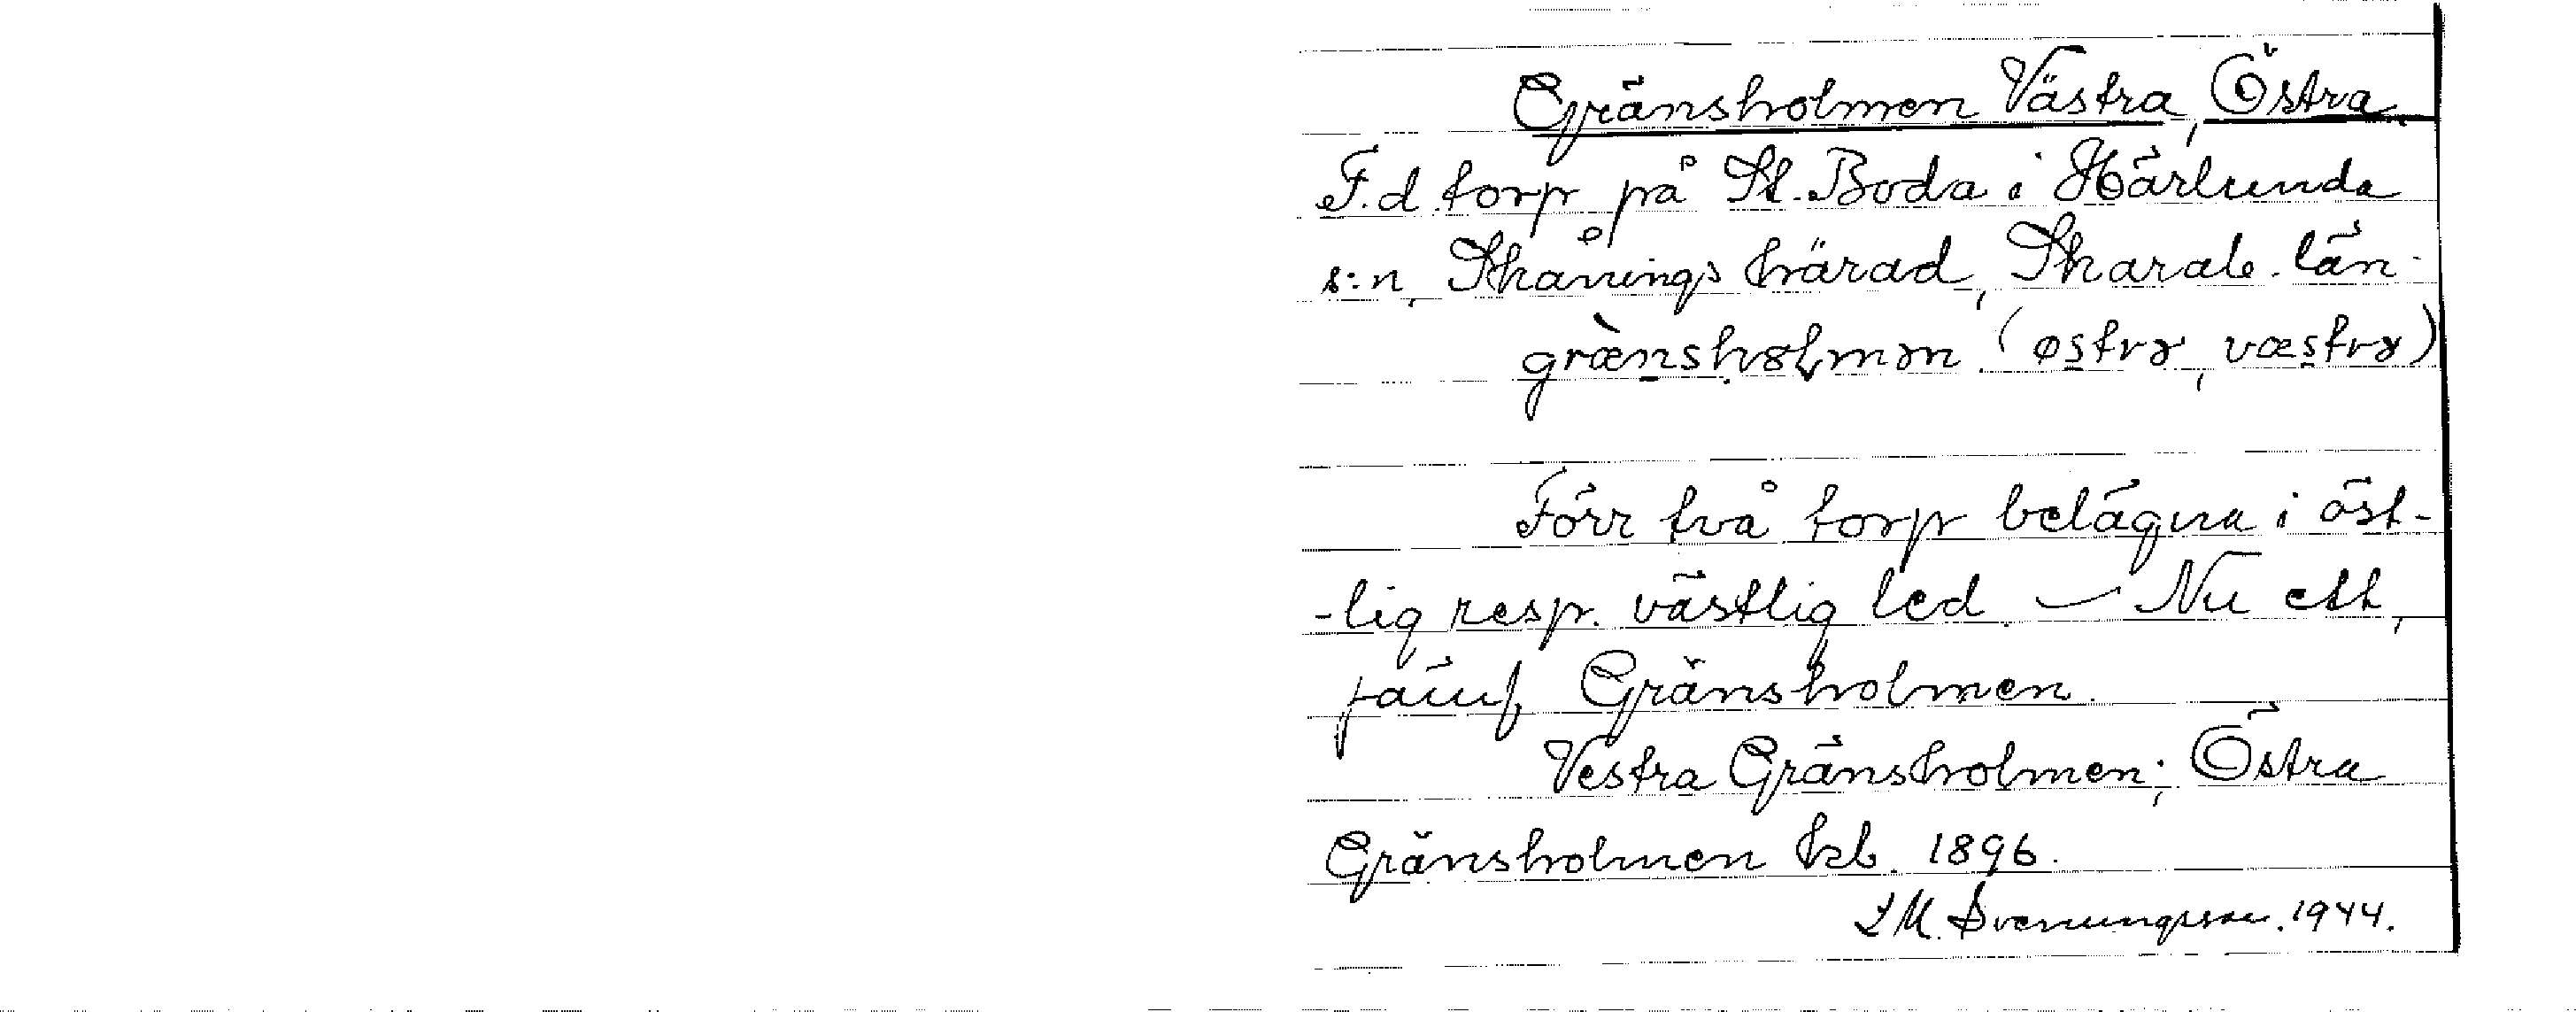 Gränsholmen Västra, Östra
F.d. torp på St. Boda i Härlunda
s:n, Skånings härad, Skarab. län.
grænshɷlmən (østrɤ, væstrɤ)
Förr två torp belägna i öst-
-lig resp. västlig led. – Nu ett,
jämf Gränsholmen.
Vestra Gränsholmen; Östra
Gränsholmen kb. 1896.
I M. Svenungsson. 1944.